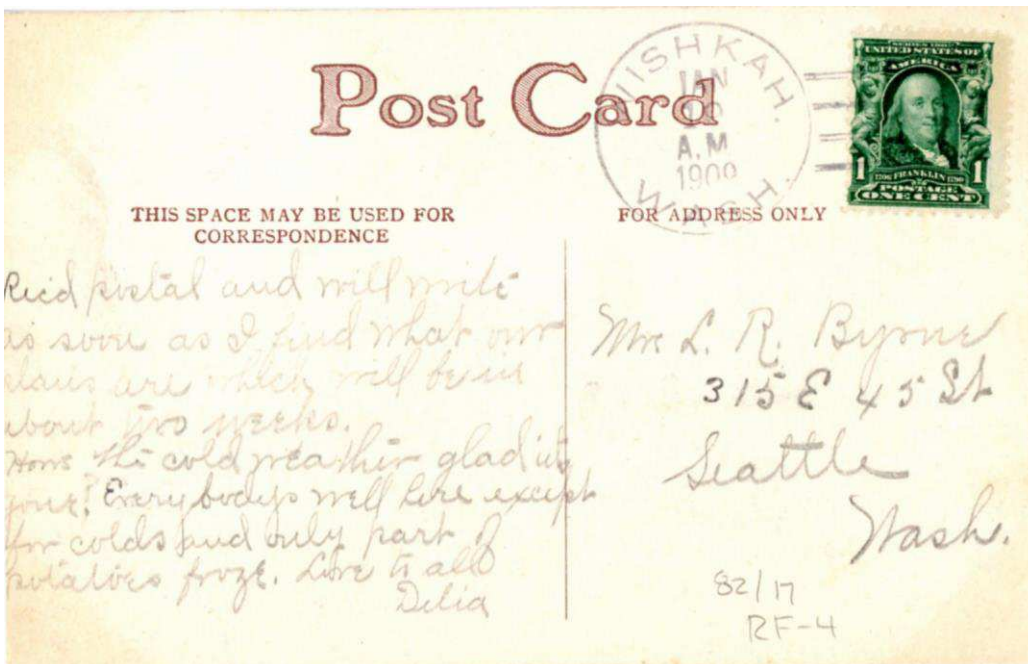 Post Card
WISHKAH.
JAN
A.M
1909
WASH.
SERIES 1902
UNITED STATES OF
AMERICA
1 1706 FRANKLIN 1790 1
POSTAGE
ONE CENT
THIS SPACE MAY BE USED FOR
CORRESPONDENCE
FOR ADDRESS ONLY
Rec'd postal and will write
as soon as I find what our
plans are which will be in
about two weeks.
Hows the cold weather glad its
gone? Everybodys well here except
for colds and only part of
potatoes froze. Love to all
Delia
Mrs L. R. Byrne
315 E 45 St
Seattle
Wash.
82/17
RF-4